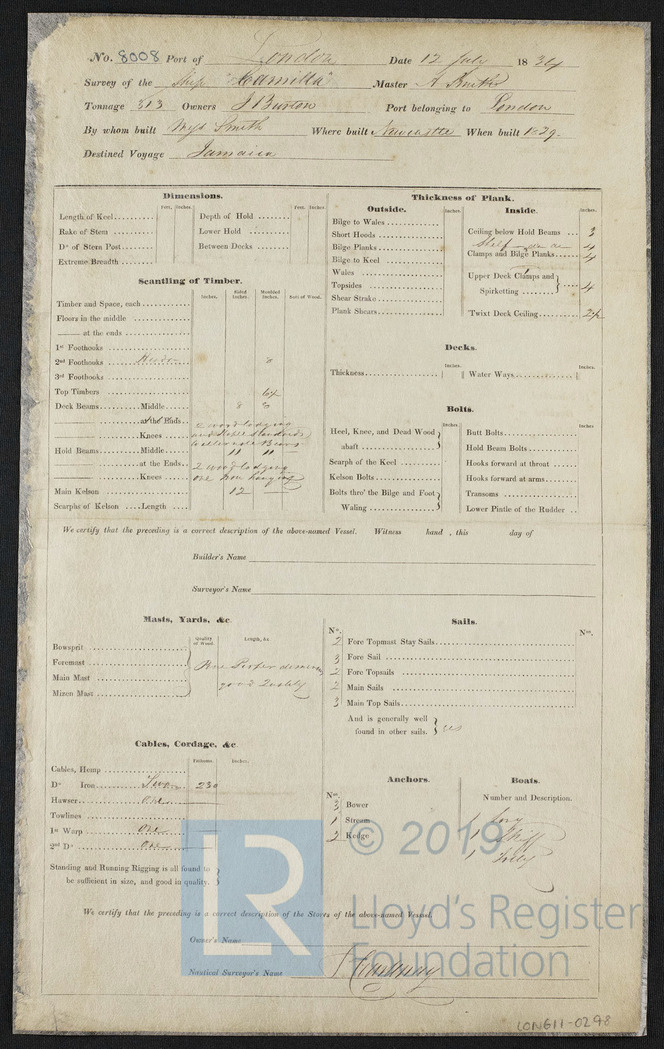 No. 8008 Port of London Date 12 July 1834
Survey of the Ship "Camilla" Master A Smith
Tonnage 313 Owners J Burton Port belonging to London
By whom built Mess Smith Where built Newcastle When built 1829.
Destined Voyage Jamaica
Dimensions.
Feet. Inches. Feet. Inches.
Length of Keel Depth of Hold
Rake of Stem Lower Hold
Do of Stern Post Between Decks
Extreme Breadth
Scantling of Timber.
Inches. Sided Inches. Moulded Inches. Sort of Wood.
Timber and Space, each
Floors in the middle
at the ends
1st Foothooks
2nd Foothooks 8
3rd Foothooks
Top Timbers
Deck Beams Middle 8 8
at the Ends 2 wood lodging
Knees
Hold Beams Middle 11 11
at the Ends 2 wood lodging
Knees one Iron hanging
Main Kelson 12
Scarphs of Kelson Length
Thickness of Plank.
Outside. Inches. Inside. Inches.
Bilge to Wales
Short Hoods
Bilge Planks
Bilge to Keel
Wales
Topsides
Shear Strake
Plank Shears
Ceiling below Hold Beams 3
Shelf 4
Clamps and Bilge Planks 4
Upper Deck Clamps and
Spirketting 4
'Twixt Deck Ceiling 2½
Decks.
Inches. Inches.
Thickness Water Ways
Bolts.
Inches. Inches.
Heel, Knee, and Dead Wood
abaft
Scarph of the Keel
Kelson Bolts
Bolts thro' the Bilge and Foot
Waling
Butt Bolts
Hold Beam Bolts
Hooks forward at throat
Hooks forward at arms
Transoms
Lower Pintle of the Rudder
We certify that the preceding is a correct description of the above-named Vessel. Witness hand, this day of
Builder's Name
Surveyor's Name
Masts, Yards, &c.
Quality of Wood. Length, &c.
Bowsprit
Foremast
Main Mast
Mizen Mast
good Quality
Sails.
No. No.
2 Fore Topmast Stay Sails
3 Fore Sail
2 Fore Topsails
2 Main Sails
3 Main Top Sails
And is generally well
found in other sails. yes
Cables, Cordage, &c.
Fathoms. Inches.
Cables, Hemp
Do Iron Two 230
Hawser One
Towlines
1st Warp One
2nd Do One
Standing and Running Rigging is all found to
be sufficient in size, and good in quality.
Anchors.
No.
3 Bower
1 Stream
2 Kedge
Boats.
Number and Description.
1 Long
1 Skiff
1 Jolly
We certify that the preceding is a correct description of the Stores of the above-named Vessel.
Owner's Name
Nautical Surveyor's Name
LR
© 2019
Lloyd's Register
Foundation
LON611-0298